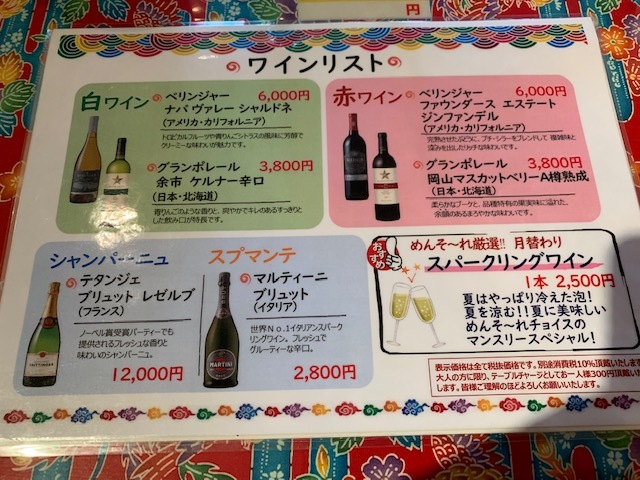 円
ワインリスト
白ワイン
ベリンジャー 6,000円
ナパ ヴァレー シャルドネ
(アメリカ・カリフォルニア)
トロピカルフルーツや青りんごシトラスの風味に芳醇で
クリーミーな味わいが魅力です。
グランポレール 3,800円
余市 ケルナー辛口
(日本・北海道)
青りんごのような香りと、爽やかでキレのあるすっきりと
した飲み口が特長です。
赤ワイン
ベリンジャー 6,000円
ファウンダース エステート
ジンファンデル
(アメリカ・カリフォルニア)
完熟させたぶどうに、プチ・シラーをブレンドして 複雑味と
深みを出したリッチな味わいです。
グランポレール 3,800円
岡山マスカットベリーA樽熟成
(日本・北海道)
柔らかなブーケと、品種特有の果実味に溢れた、
余韻のあるまろやかな味わいです。
シャンパーニュ
テタンジェ
ブリュット レゼルブ
(フランス)
ノーベル賞受賞パーティーでも
提供されるフレッシュな香りと
味わいのシャンパーニュ。
12,000円
スプマンテ
マルティーニ
ブリュット
(イタリア)
世界No.1イタリアンスパーク
リングワイン。フレッシュで
グルーティーな辛口。
2,800円
MARTINI
おすすめ
めんそ~れ厳選!! 月替わり
スパークリングワイン
1本 2,500円
夏はやっぱり冷えた泡!
夏を涼む!!夏に美味しい
めんそ~れチョイスの
マンスリースペシャル!
表示価格は全て税抜価格です。別途消費税10%頂戴いたします。
大人の方に限り、テーブルチャージとしてお一人様300円頂戴いた
します。皆様ご理解のほどよろしくお願いいたします。